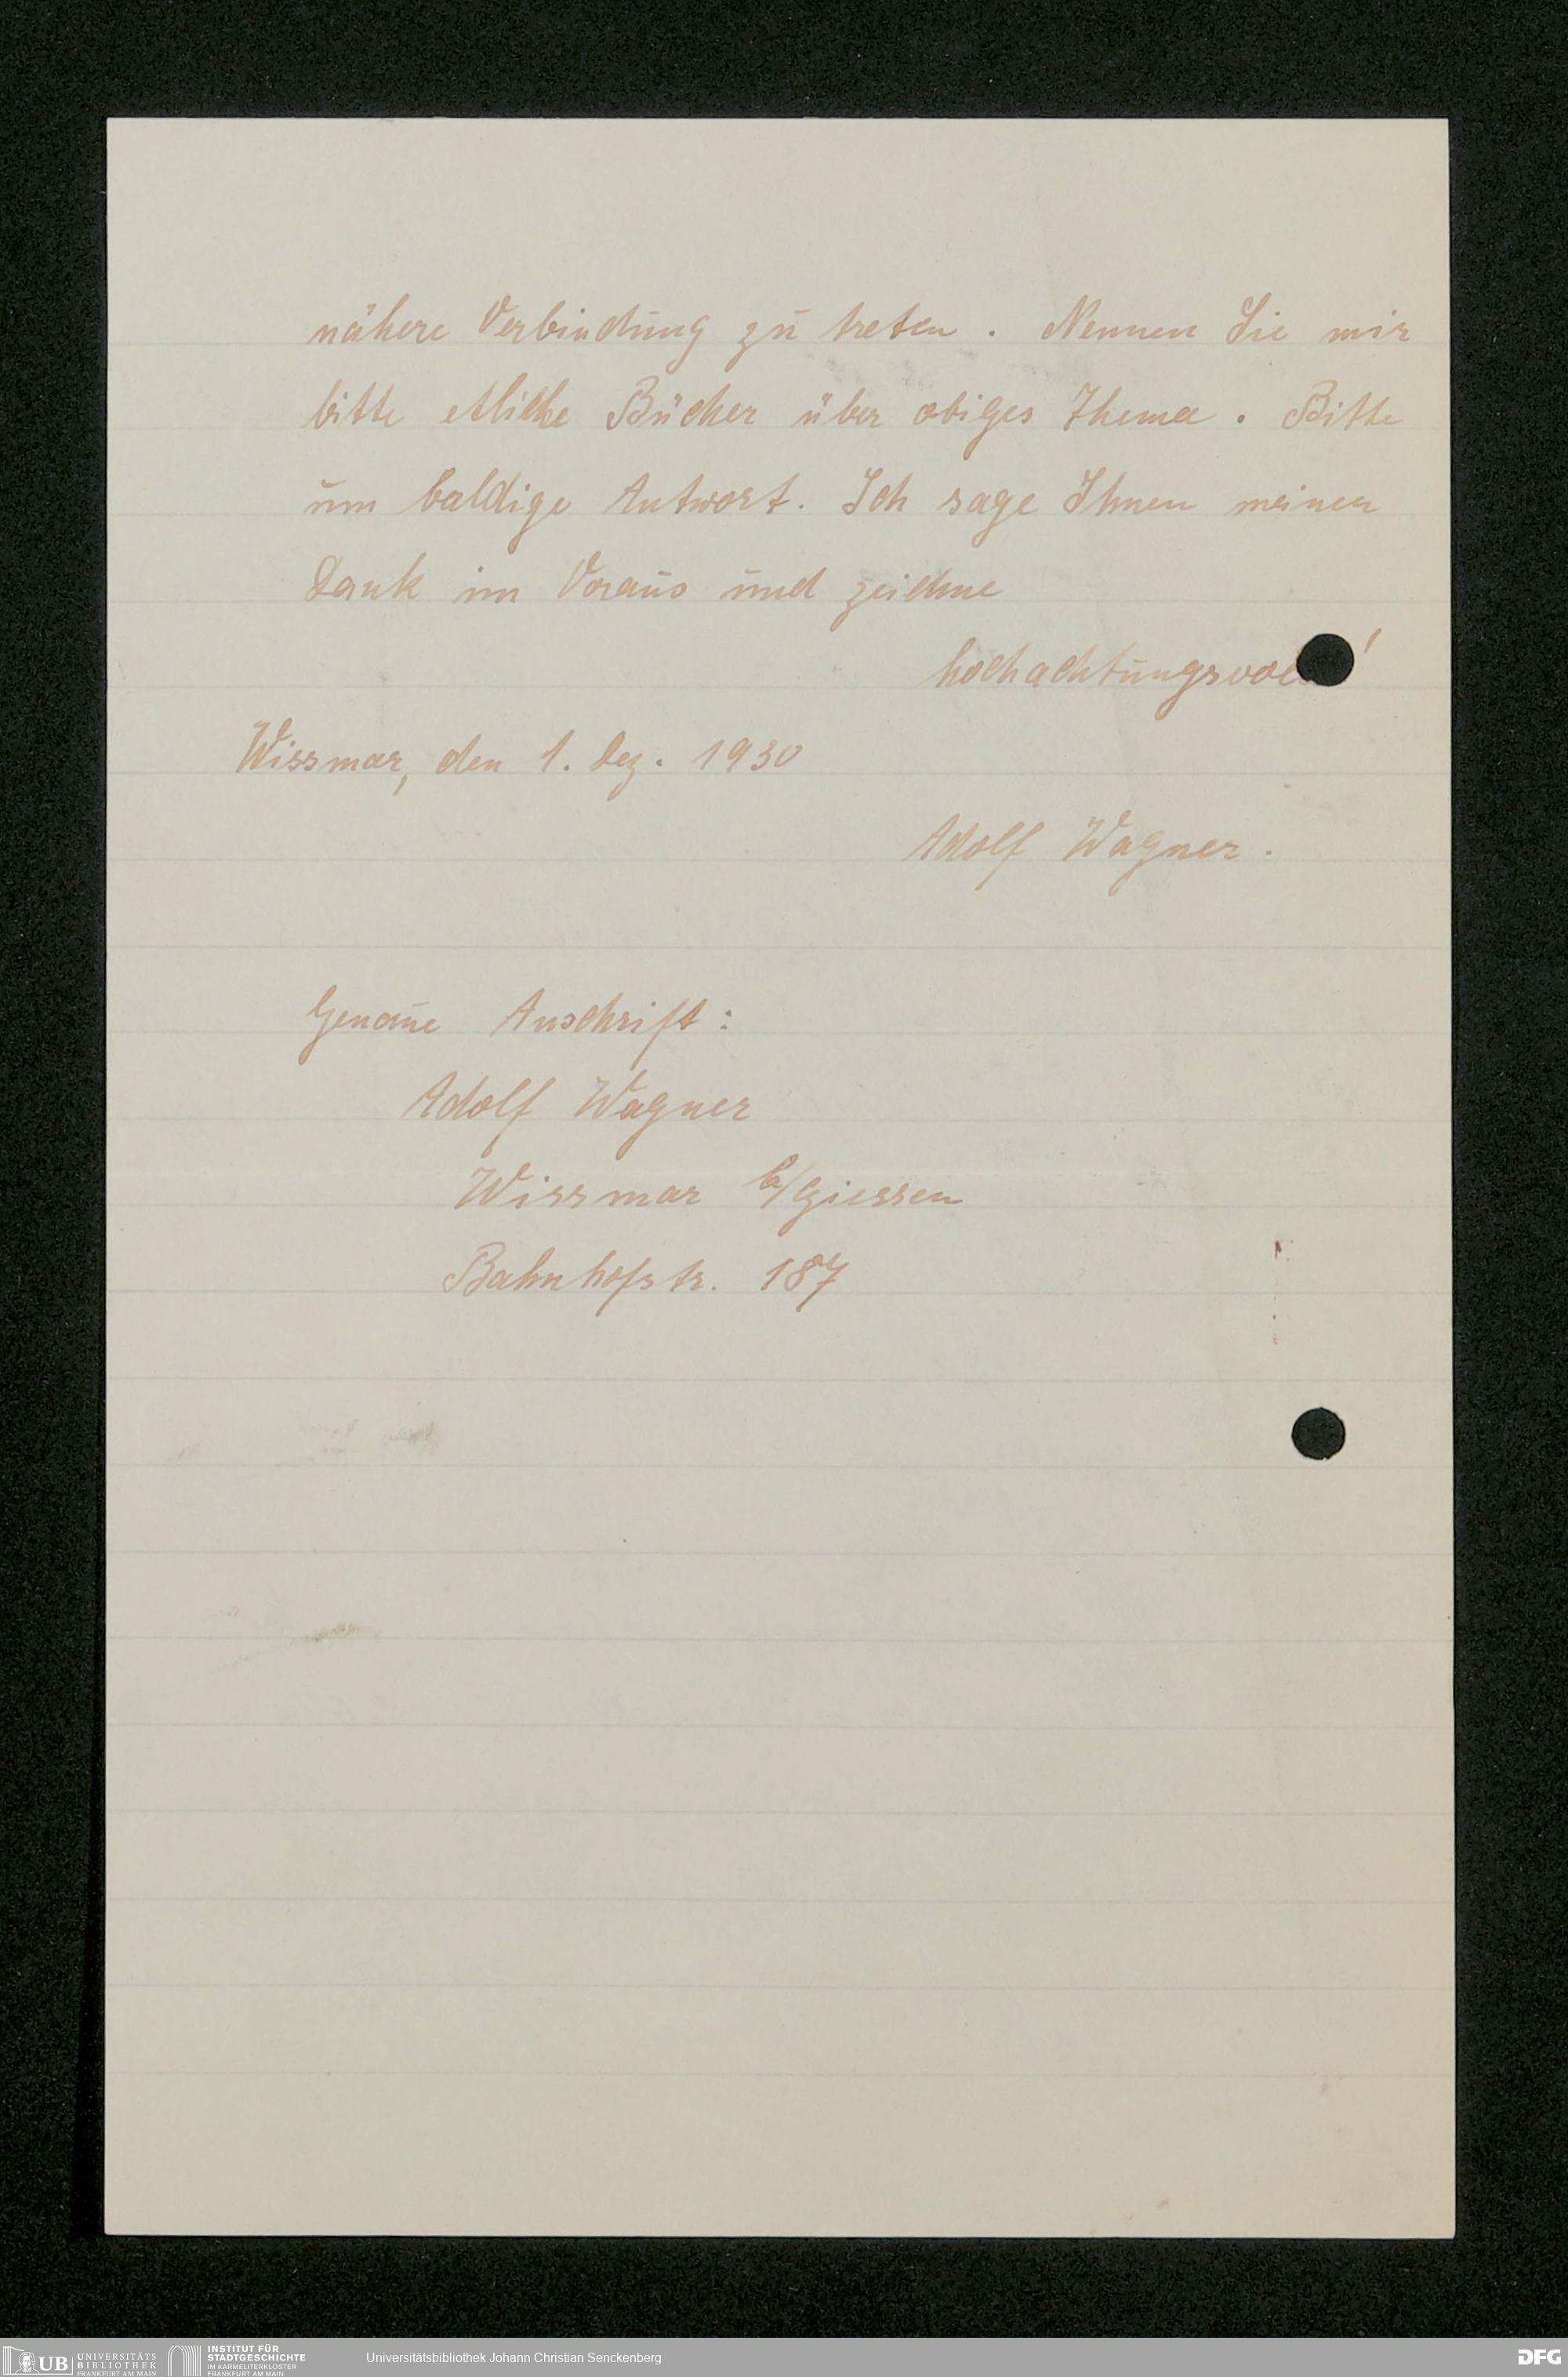 nähere Verbindung zu treten. Nennen Sie mir
bitte etliche Bücher über obiges Thema. Bitte
um baldige Antwort. Ich sage Ihnen meinen
Dank im Voraus und zeichne
hochachtungsvoll!
Wissmar, den 1. Dez. 1930
Adolf Wagner.
Genaue Anschrift:
Adolf Wagner
Wissmar b/Giessen
Bahnhofstr. 187
UB UNIVERSITÄTS BIBLIOTHEK FRANKFURT AM MAIN
INSTITUT FÜR STADTGESCHICHTE IM KARMELITERKLOSTER FRANKFURT AM MAIN
Universitätsbibliothek Johann Christian Senckenberg
DFG